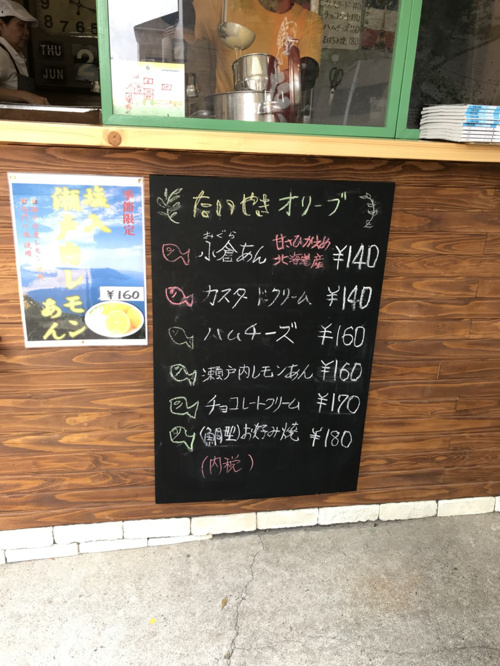 THU
JUN
たいやきオリーブ
おぐら
小倉あん 甘さひかえめ 北海道産 ¥140
カスタードクリーム ¥140
ハムチーズ ¥160
瀬戸内レモンあん ¥160
チョコレートクリーム ¥170
(鯛型)お好み焼 ¥180
(内税)
季節限定
塩入
瀬戸内レモン
あん
¥160